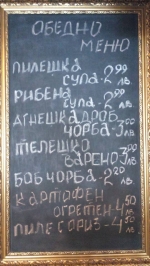 ОБЕДНО
МЕНЮ
ПИЛЕШКА
СУПА-2,99
ЛВ.
РИБЕНА
СУПА-2,99
ЛВ.
АГНЕШКА ДРОБ
ЧОРБА-3,50
ЛВ.
ТЕЛЕШКО
ВАРЕНО-3,00
ЛВ.
БОБ ЧОРБА-2,20
ЛВ.
КАРТОФЕН
ОГРЕТЕН-4,50
ЛВ.
ПИЛЕ С ОРИЗ-4,50
ЛВ.